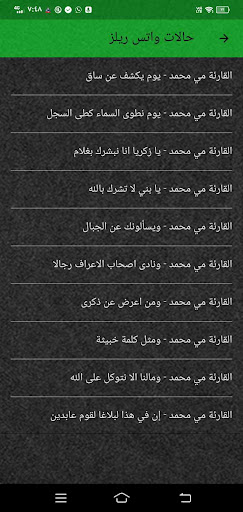 ٧:٤٨
حالات واتس ريلز
القارئة مي محمد - يوم يكشف عن ساق
القارئة مي محمد - يوم نطوى السماء كطى السجل
القارئة مي محمد - يا زكريا انا نبشرك بغلام
القارئة مي محمد - يا بني لا تشرك بالله
القارئة مي محمد - ويسألونك عن الجبال
القارئة مي محمد - ونادى اصحاب الاعراف رجالا
القارئة مي محمد - ومن اعرض عن ذكرى
القارئة مي محمد - ومثل كلمة خبيثة
القارئة مي محمد - ومالنا الا نتوكل على الله
القارئة مي محمد - إن في هذا لبلاغا لقوم عابدين